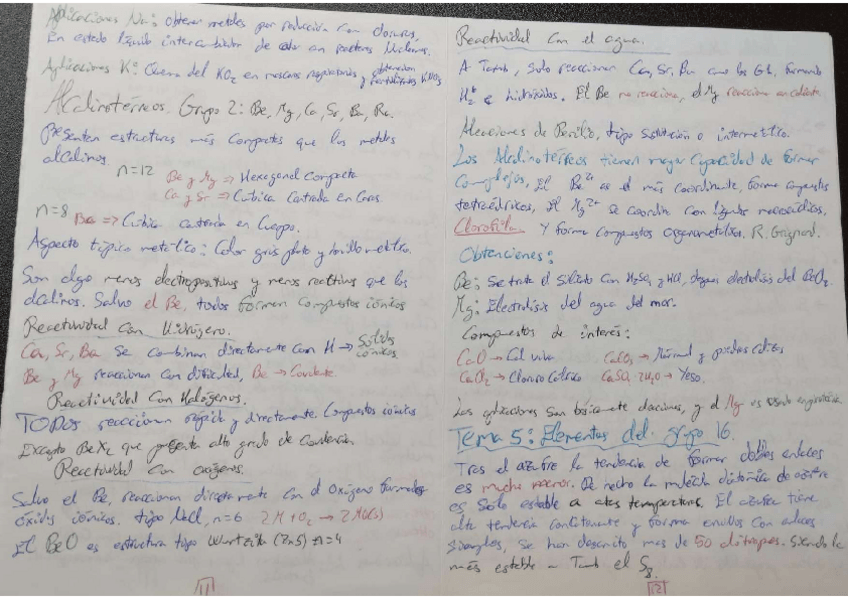 Aplicaciones Na: Obtener metales por reducción con cloruros,
En estado líquido intercambiador de calor en reactores Nucleares.
Aplicaciones K: Quema del KO2 en mascaras respiratorias y obtencion
Alcalinotérreos. Grupo 2: Be, Mg, Ca, Sr, Ba, Ra.
Presentan estructuras más compactas que los metales
alcalinos
n=12 Be y Mg => Hexagonal Compacta
Ca y Sr => Cúbica Centrada en Caras.
n=8 Ba => Cúbica centrada en Cuerpo.
Aspecto típico metálico: Color gris plata y brillo metálico.
Son algo menos electropositivos y menos reactivos que los
alcalinos. Salvo el Be, todos forman compuestos iónicos
Reactividad con Hidrógeno.
Ca, Sr, Ba Se combinan directamente con H → Solidos iónicos
Be y Mg reaccionan con dificultad, Be → Covalente
Reactividad con Halógenos.
TODOS reaccionan rápida y directamente. Compuestos iónicos
Excepto BeX2 que presenta alto grado de Covalencia
Reactividad con oxígenos.
Salvo el Be, reaccionan directamente con el Oxígeno formando
óxidos iónicos. tipo NaCl, n=6 2M + O2 → 2MO(s)
El BeO es estructura tipo Wurtzita (ZnS) n=4
11
Reactividad con el agua.
A Tamb, Solo reaccionan Ca, Sr, Ba como los G1, formando
H2 e hidróxidos. El Be no reacciona, el Mg reacciona en caliente.
Aleaciones de Berilio, tipo Sustitución o intermetálico.
Los Alcalinotérreos tienen mayor Capacidad de formar
Complejos, El Be2+ es el más coordinante, forma compuestos
tetraédricos, El Mg2+ se coordina con ligandos macrocíclicos.
Clorofila. Y forma Compuestos organometálicos. R. Grignard.
Obtenciones:
Be: Se trata el Silicato con H2SO4 y HCl, despues electrolisis del BeCl2.
Mg: Electrolisis del agua del mar.
Compuestos de interés:
CaO → Cal viva CaCO3 → Mármol y piedras calizas
CaCl2 → Cloruro Cálcico CaSO4·2H2O → Yeso.
Las aplicaciones son básicamente aleaciones, y el Mg es usado en
Tema 5: Elementos del grupo 16.
Tras el azufre la tendencia de formar dobles enlaces
es mucho menor. De hecho la molécula diatómica de azufre
es Solo estable a altas temperaturas. El azufre tiene
alta tendencia concatenante y forma anillos con enlaces
simples, Se han descrito más de 50 alótropos. Siendo lo
más estable a Tamb el S8.
12